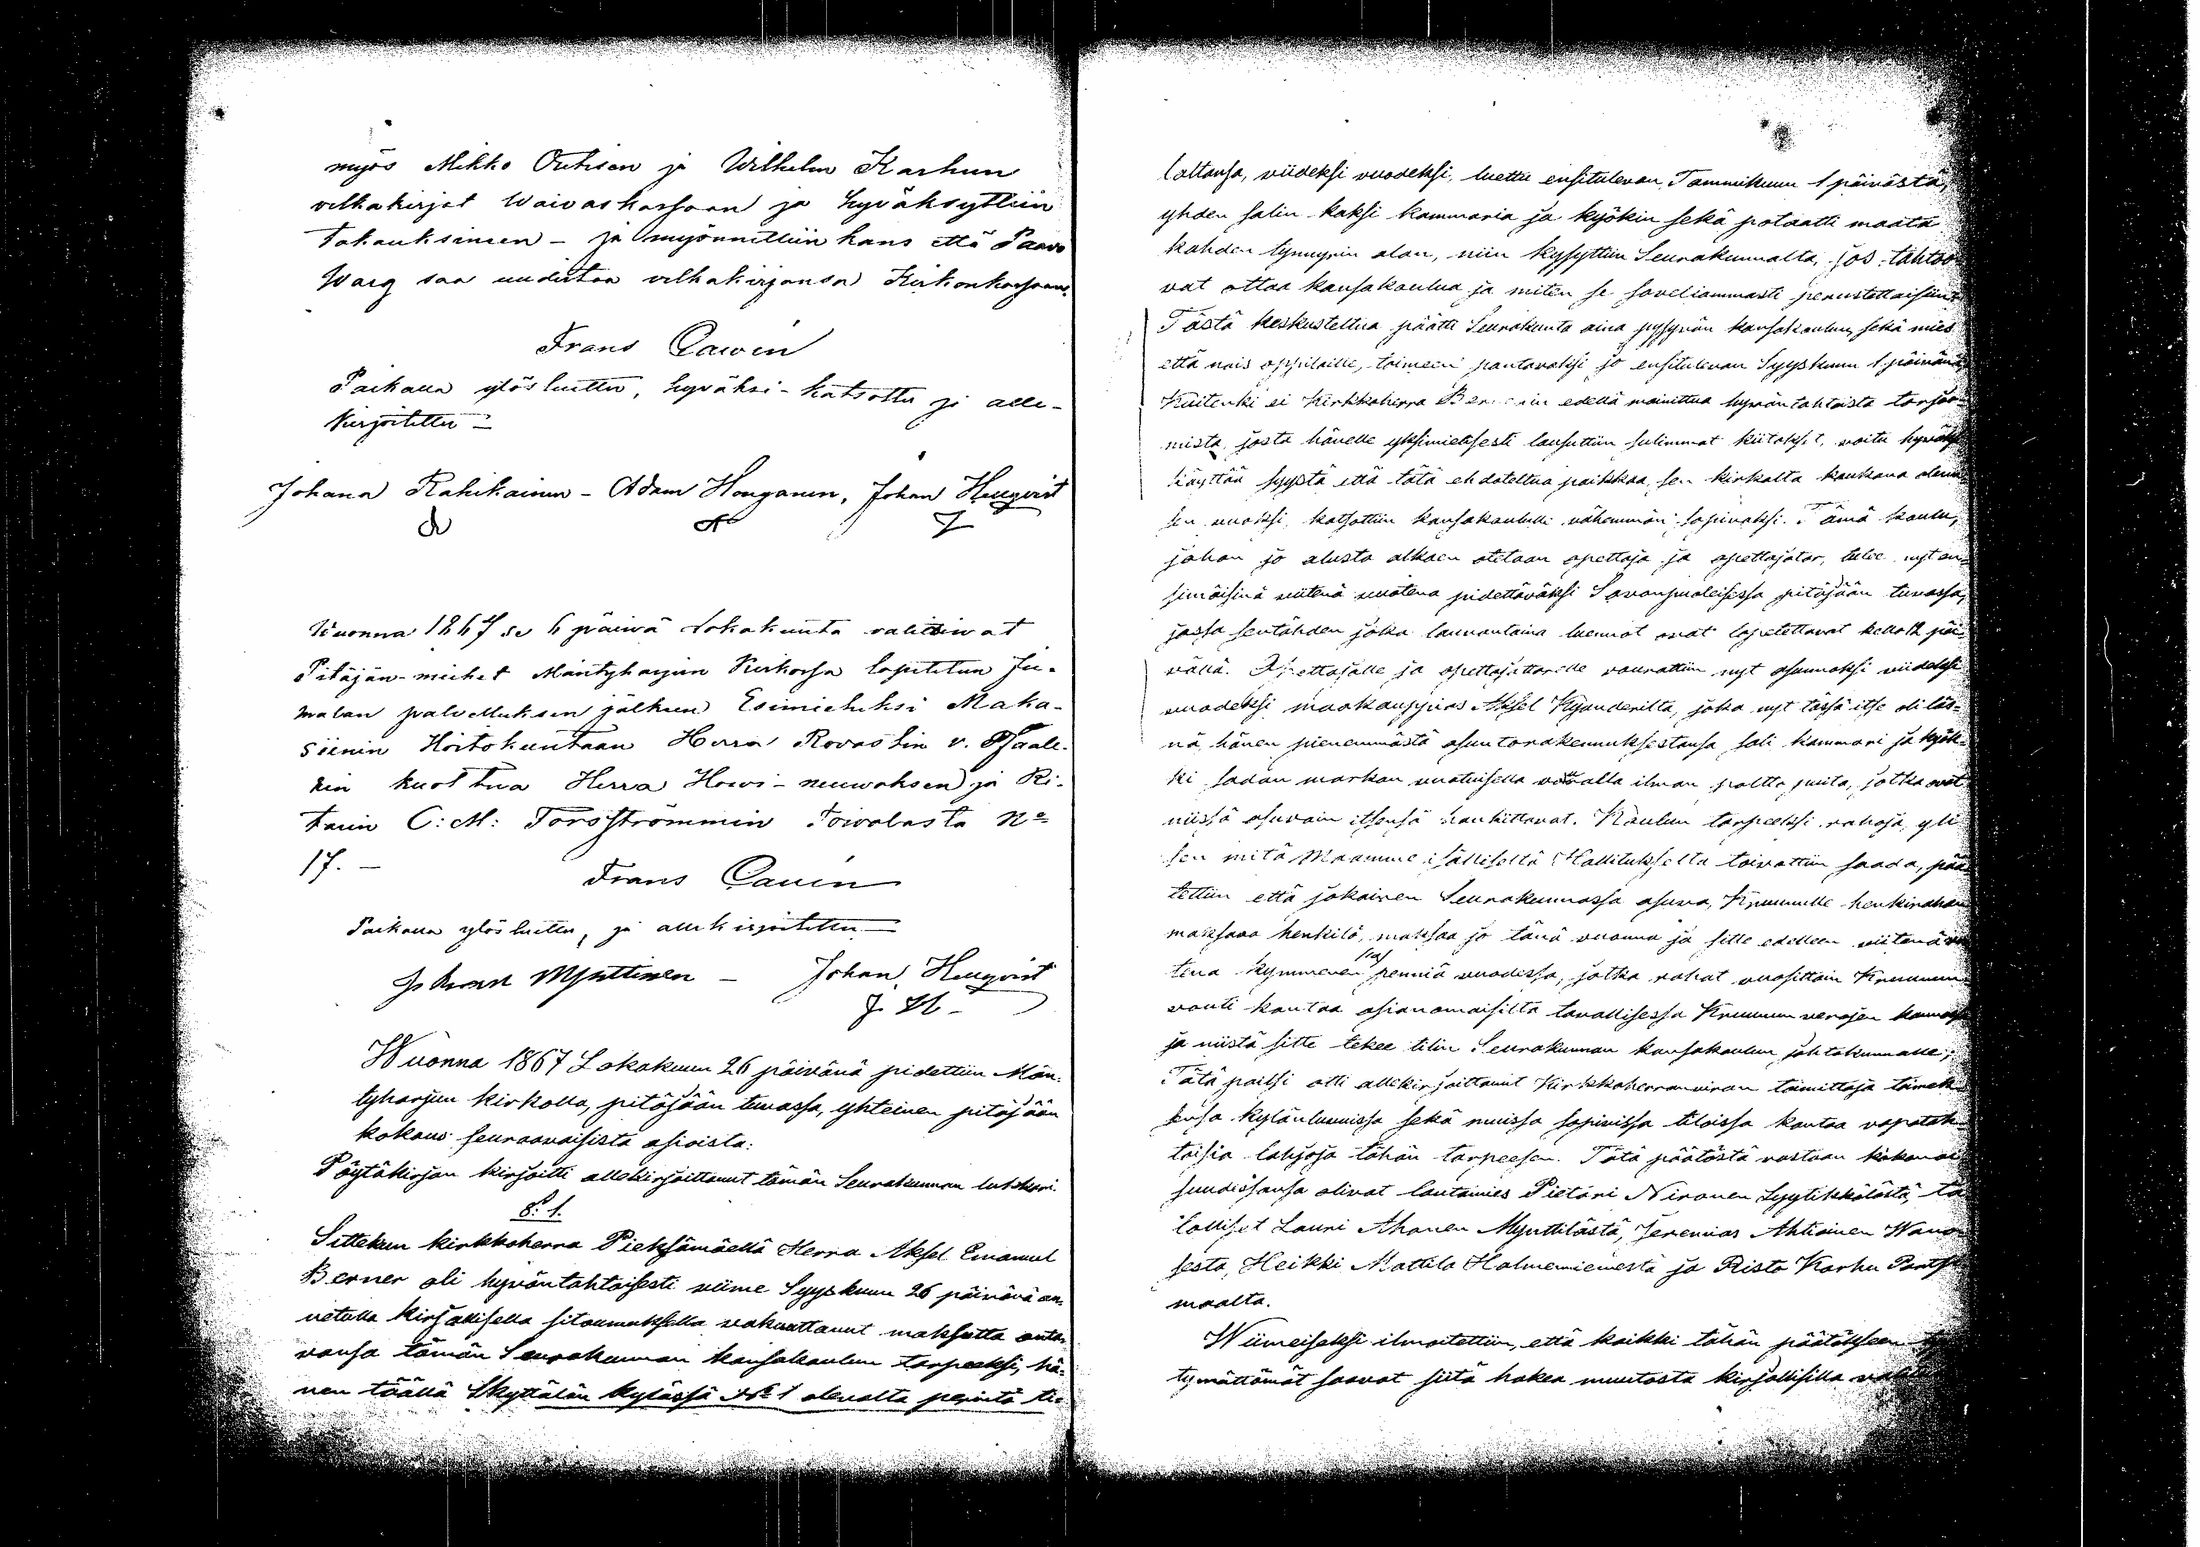 myös Mikko Outisen ja Wilhelm Karhun
velkakirjat Waivaskassaan ja hyväksyttiin
Takauksineen – ja myönnettiin kans että Paavo
Warg saa uudistaa velkakirjansa Kirkonkassaan.
Frans Cawén
Paikalla ylösluettu, hyväksi-katsottu ja alle-
kirjoitettu –
Johana Rahikainen – Adam Honganen, Johan Hellqvist
Wuonna 1867 se 6 päiwä Lokakuuta valitsiwat
Pitäjän-miehet Mäntyharjun Kirkossa lopetetun Ju-
malan palvelluksen jälkeen Esimieheksi Maka-
siinin Hoitokuntaan Herra Rovastin v.
kuoltua Herra Howi-neuwoksen ja Ri-
tarin C: M: Torsströmmin Toivolasta No
17. –
Frans Cawén
Paikalla ylösluettu, ja allekirjoitettu –
Johan Mynttinen – Johan Hellqvist
J H –
Wuonna 1867 Lokakuun 26 päivänä pidettiin Män-
tyharjun kirkolla, pitäjään tuvassa, yhteinen pitäjään
kokous seuraavaisista asioista:
Pöytäkirjan kirjoitti allekirjoittanut tämän Seurakunnan lukkari.
§. 1.
Sittekun kirkkoherra Pieksämäellä Herra Aksel Emanuel
Berner oli hyväntahtoisesti viime Syyskuun 26 päivänä an-
netulla kirjallisella sitoumuksella vakuuttanut maksutta anta-
vansa tämän Seurakunnan kansakoulun tarpeeksi, hä-
nen täällä Skyttälän kylässä No 1 olevalta perintö ti-
laltansa, viideksi vuodeksi, luettu ensitulevan Tammikuun 1 päivästä,
yhden salin kaksi kammaria ja kyökin sekä potaatti maata
kahden tynnyrin alan, niin kysyttiin Seurakunnalta, jos tahtoo-
vat ottaa kansakoulua ja miten se soveliammasti perustettaisiin.
Tästä keskusteltua päätti Seurakunta aina pysyvän kansakoulun, sekä mies
että nais oppilaille, toimeen pantavaksi jo ensitulevan Syyskuun 1 päivänä.
Kuitenki ei Kirkkoherra Bernerin edellä mainittua hyväntahtoista tarjoo-
mista, josta hänelle yksimielisesti lausuttiin sulimmat kiitokset, voitu hyväksi
käyttää syystä että tätä ehdoteltua paikkaa, sen kirkolta kaukana olemi-
sen vuoksi, katsottiin kansakoululle vähemmän sopivaksi. Tämä koulu,
johon jo alusta alkaen otetaan opettaja ja opettajatar, tulee nyt en-
simäisinä viitenä vuotena pidettäväksi Savonpuoleisessa pitäjään tuvassa,
jossa sentähden joka lauvantaina luennot ovat lopetettavat kello 12 päi-
vällä. Opettajalle ja opettajattarelle vuorattiin nyt asunnoksi viideksi
vuodeksi maakauppias Aksel Kyanderilta, joka nyt tässä itse oli läs-
nä, hänen pienemmästä asuntorakennuksestansa sali kammari ja kyök-
ki sadan markan vuotuisella vuoralla ilman poltto puita, jotka ovat
niissä asuvain itsensä hankittavat. Koulun tarpeeksi rahoja yli
sen mitä Maamme isälliseltä Hallitukselta toivottiin saada, pää-
tettiin että jokainen Seurakunnassa asuva, Kruunulle henkirahaa
maksava henkilö, maksaa jo tänä vuonna ja sille edelleen viitenä vuo-
tena kymmenen penniä vuodessa, jotka rahat vuosittain Kruunun-
vouti kantaa asianomaisilta tavallisessa Kruunun verojen kannossa
ja niistä sitte tekee tilin Seurakunnan kansakoulun johtokunnalle;
Tätä paitsi otti allekirjoittanut Kirkkoherranviran toimittaja toimek-
sensa kylänluvuissa sekä muissa sopivissa tiloissa kantaa vapatah-
toisia lahjoja tähän tarpeesen. Tätä päätöstä vastaan kokonai-
suudessansa olivat lautamies Pietari Nironen Lyytikkälästä, ta-
lolliset Lauri Ahonen Mynttilästä, Jeremias Ahtiainen Wano-
sesta, Heikki Mattila Halmeniemestä ja Risto Karhu Partsi-
maalta.
Wiimeiseksi ilmoitettiin, että kaikki tähän päätökseen
tymättömät saavat siitä hakea muutosta kirjallisilla